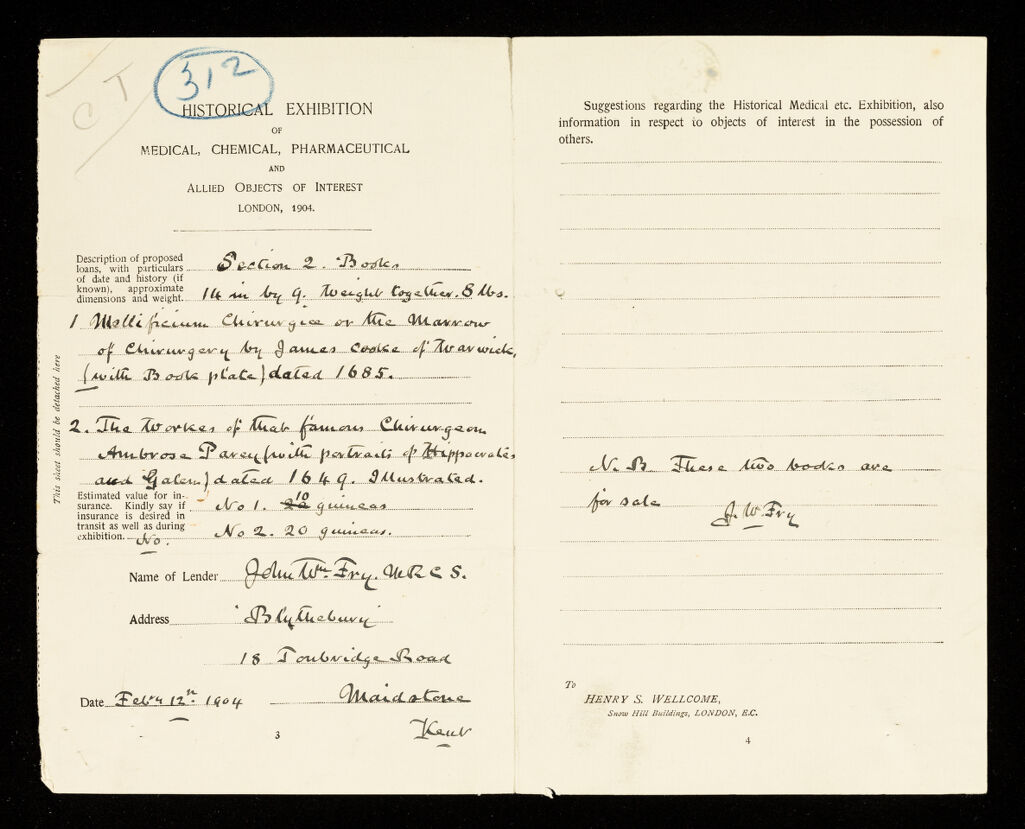 CT
312
HISTORICAL EXHIBITION
OF
MEDICAL, CHEMICAL, PHARMACEUTICAL
AND
ALLIED OBJECTS OF INTEREST
LONDON, 1904.
Description of proposed
loans, with particulars
of date and history (if
known), approximate
dimensions and weight.
Section 2. Books
14 in by 9. Weight together. 8 lbs.
1 Mellificium Chirurgice or the Marrow
of Chirurgery by James Cooke of Warwick,
(with Book plate) dated 1685.
2. The Workes of that famous Chirurgeon
Ambrose Parey (with portraits of Hippocrates
and Galen) dated 1649. Illustrated.
Estimated value for in-
surance. Kindly say if
insurance is desired in
transit as well as during
exhibition. No.
No 1. 10 guineas
No 2. 20 guineas.
Name of Lender John Wm. Fry. MRCS.
Address "Blythebury"
18 Tonbridge Road
Date Feby 12th. 1904 Maidstone
Kent
3
This sheet should be detached here
Suggestions regarding the Historical Medical etc. Exhibition, also
information in respect to objects of interest in the possession of
others.
N.B These two books are
for sale
J. W. Fry
To
HENRY S. WELLCOME,
Snow Hill Buildings, LONDON, E.C.
4